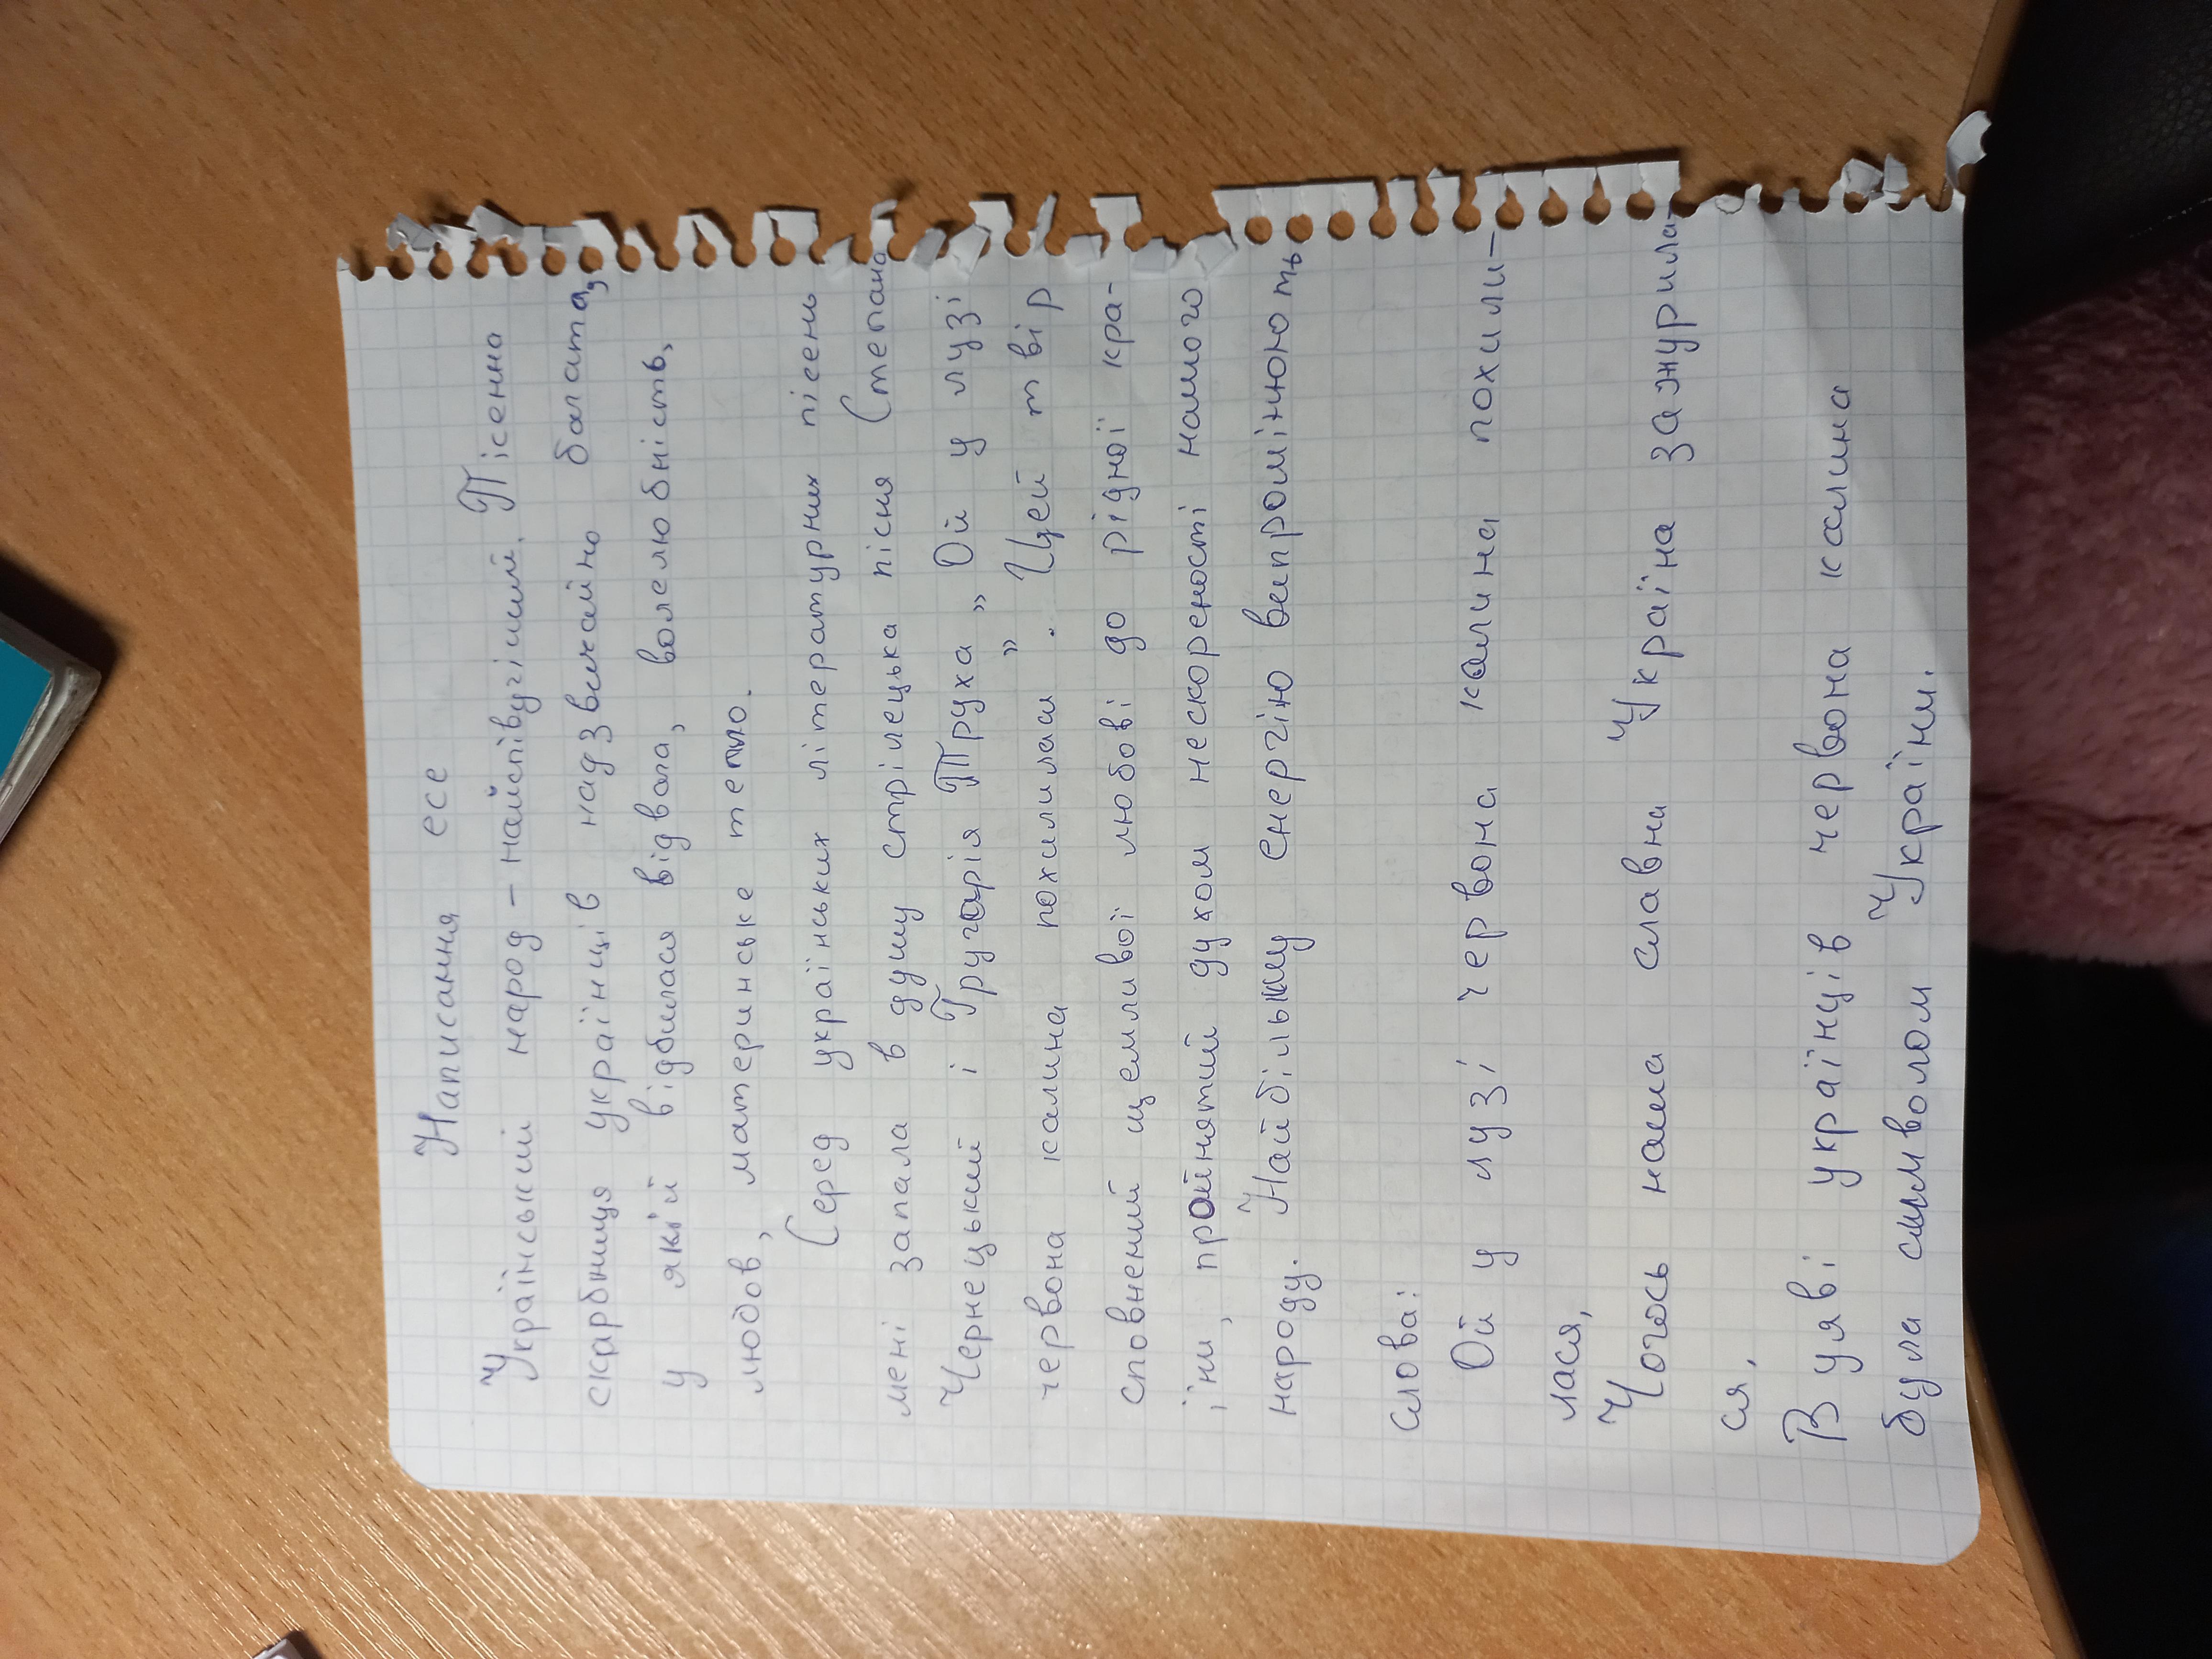 Написання есе
Український народ - найспівучіший. Пісенна
скарбниця українців надзвичайно багата,
у якій відбилася відвага, волелюбність,
любов, материнське тепло.
Серед українських літературних пісень
мені запала в душу стрілецька пісня Степана
Чарнецький і Григорія Труха „ Ой у лузі
червона калина похилилася ". Цей твір
сповнений щемливої любові до рідної кра-
їни, пройнятий духом нескореності нашого
народу. Найбільшу енергію випромінюють
слова:
Ой у лузі червона калина похили-
лася,
Чогось наша славна Україна зажурила-
ся.
В уяві українців червона калина
була символом України.